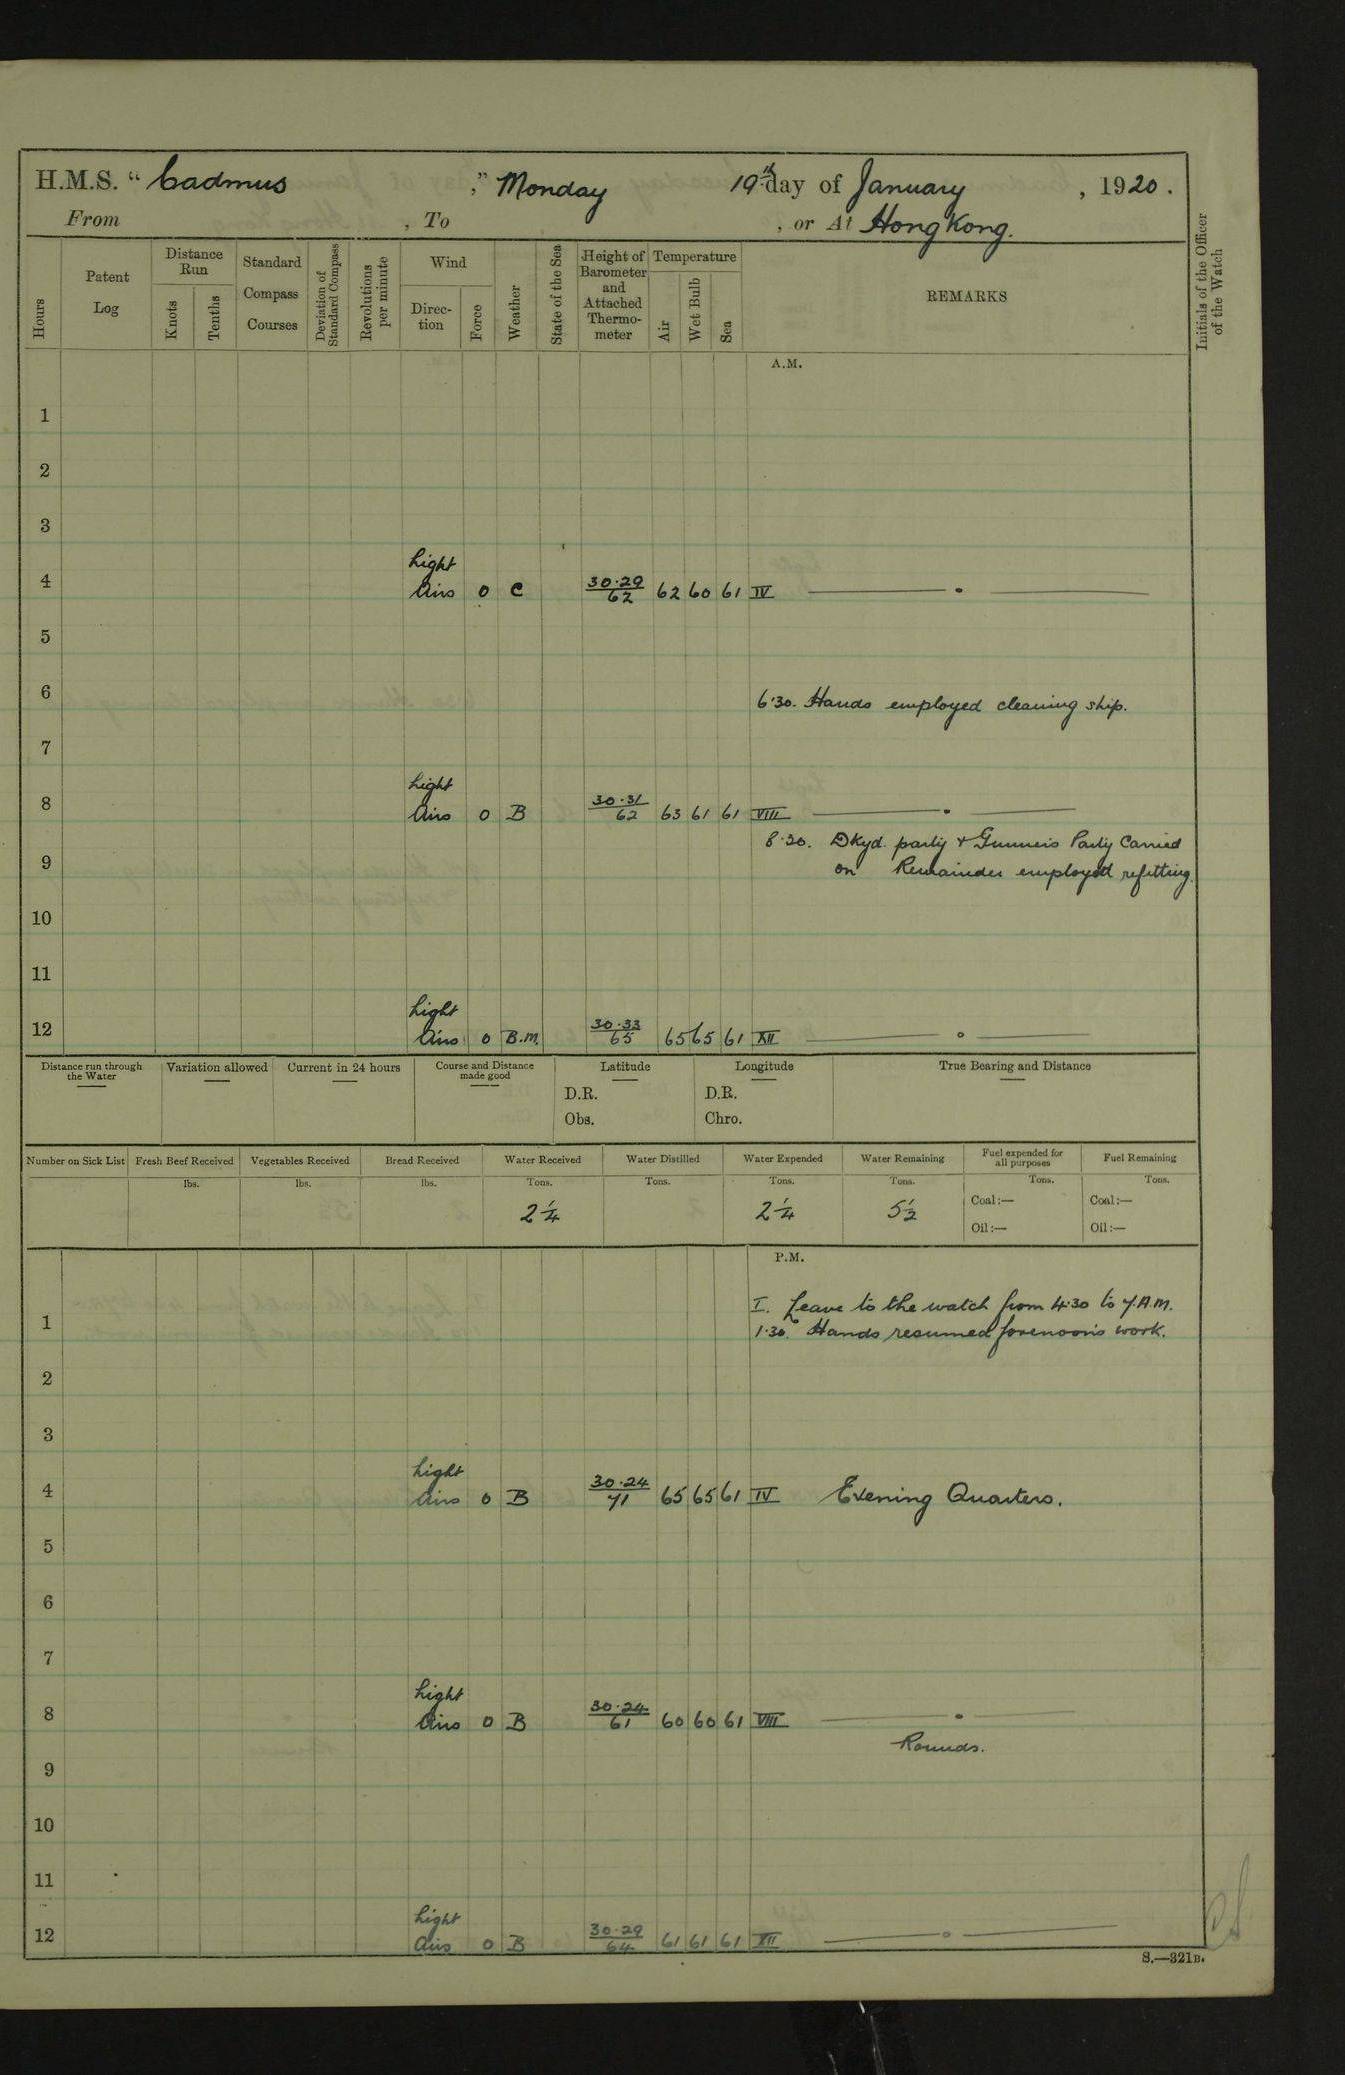 H.M.S. "Cadmus," Monday 19th day of January, 1920.
From , To , or At Hong Kong.
Hours
Patent Log
Distance Run
Knots
Tenths
Standard Compass Courses
Deviation of Standard Compass
Revolutions per minute
Wind
Direction
Force
Weather
State of the Sea
Height of Barometer and Attached Thermometer
Temperature
Air
Wet Bulb
Sea
REMARKS
Initials of the Officer of the Watch
A.M.
1
2
3
Light
4 Airs 0 C 30.29/62 62 60 61 IV
5
6 6.30. Hands employed cleaning ship.
7
Light
8 Airs 0 B 30.31/62 63 61 61 VIII
8.30. Dkyd. party & Gunner's Party Carried
9 on Remainder employed refitting.
10
11
Light
12 Airs 0 B.M. 30.33/65 65 65 61 XII
Distance run through the Water
Variation allowed
Current in 24 hours
Course and Distance made good
Latitude
D.R.
Obs.
Longitude
D.R.
Chro.
True Bearing and Distance
Number on Sick List
Fresh Beef Received lbs.
Vegetables Received lbs.
Bread Received lbs.
Water Received Tons. 2 1/4
Water Distilled Tons.
Water Expended Tons. 2 1/4
Water Remaining Tons. 5 1/2
Fuel expended for all purposes Tons.
Coal:—
Oil:—
Fuel Remaining Tons.
Coal:—
Oil:—
P.M.
I. Leave to the watch from 4.30 to 7.A.M.
1 1.30. Hands resumed forenoon's work.
2
3
Light
4 Airs 0 B 30.24/71 65 65 61 IV Evening Quarters.
5
6
7
Light
8 Airs 0 B 30.24/61 60 60 61 VIII
Rounds.
9
10
11
Light
12 Airs 0 B 30.29/64 61 61 61 XII
S.—321B.